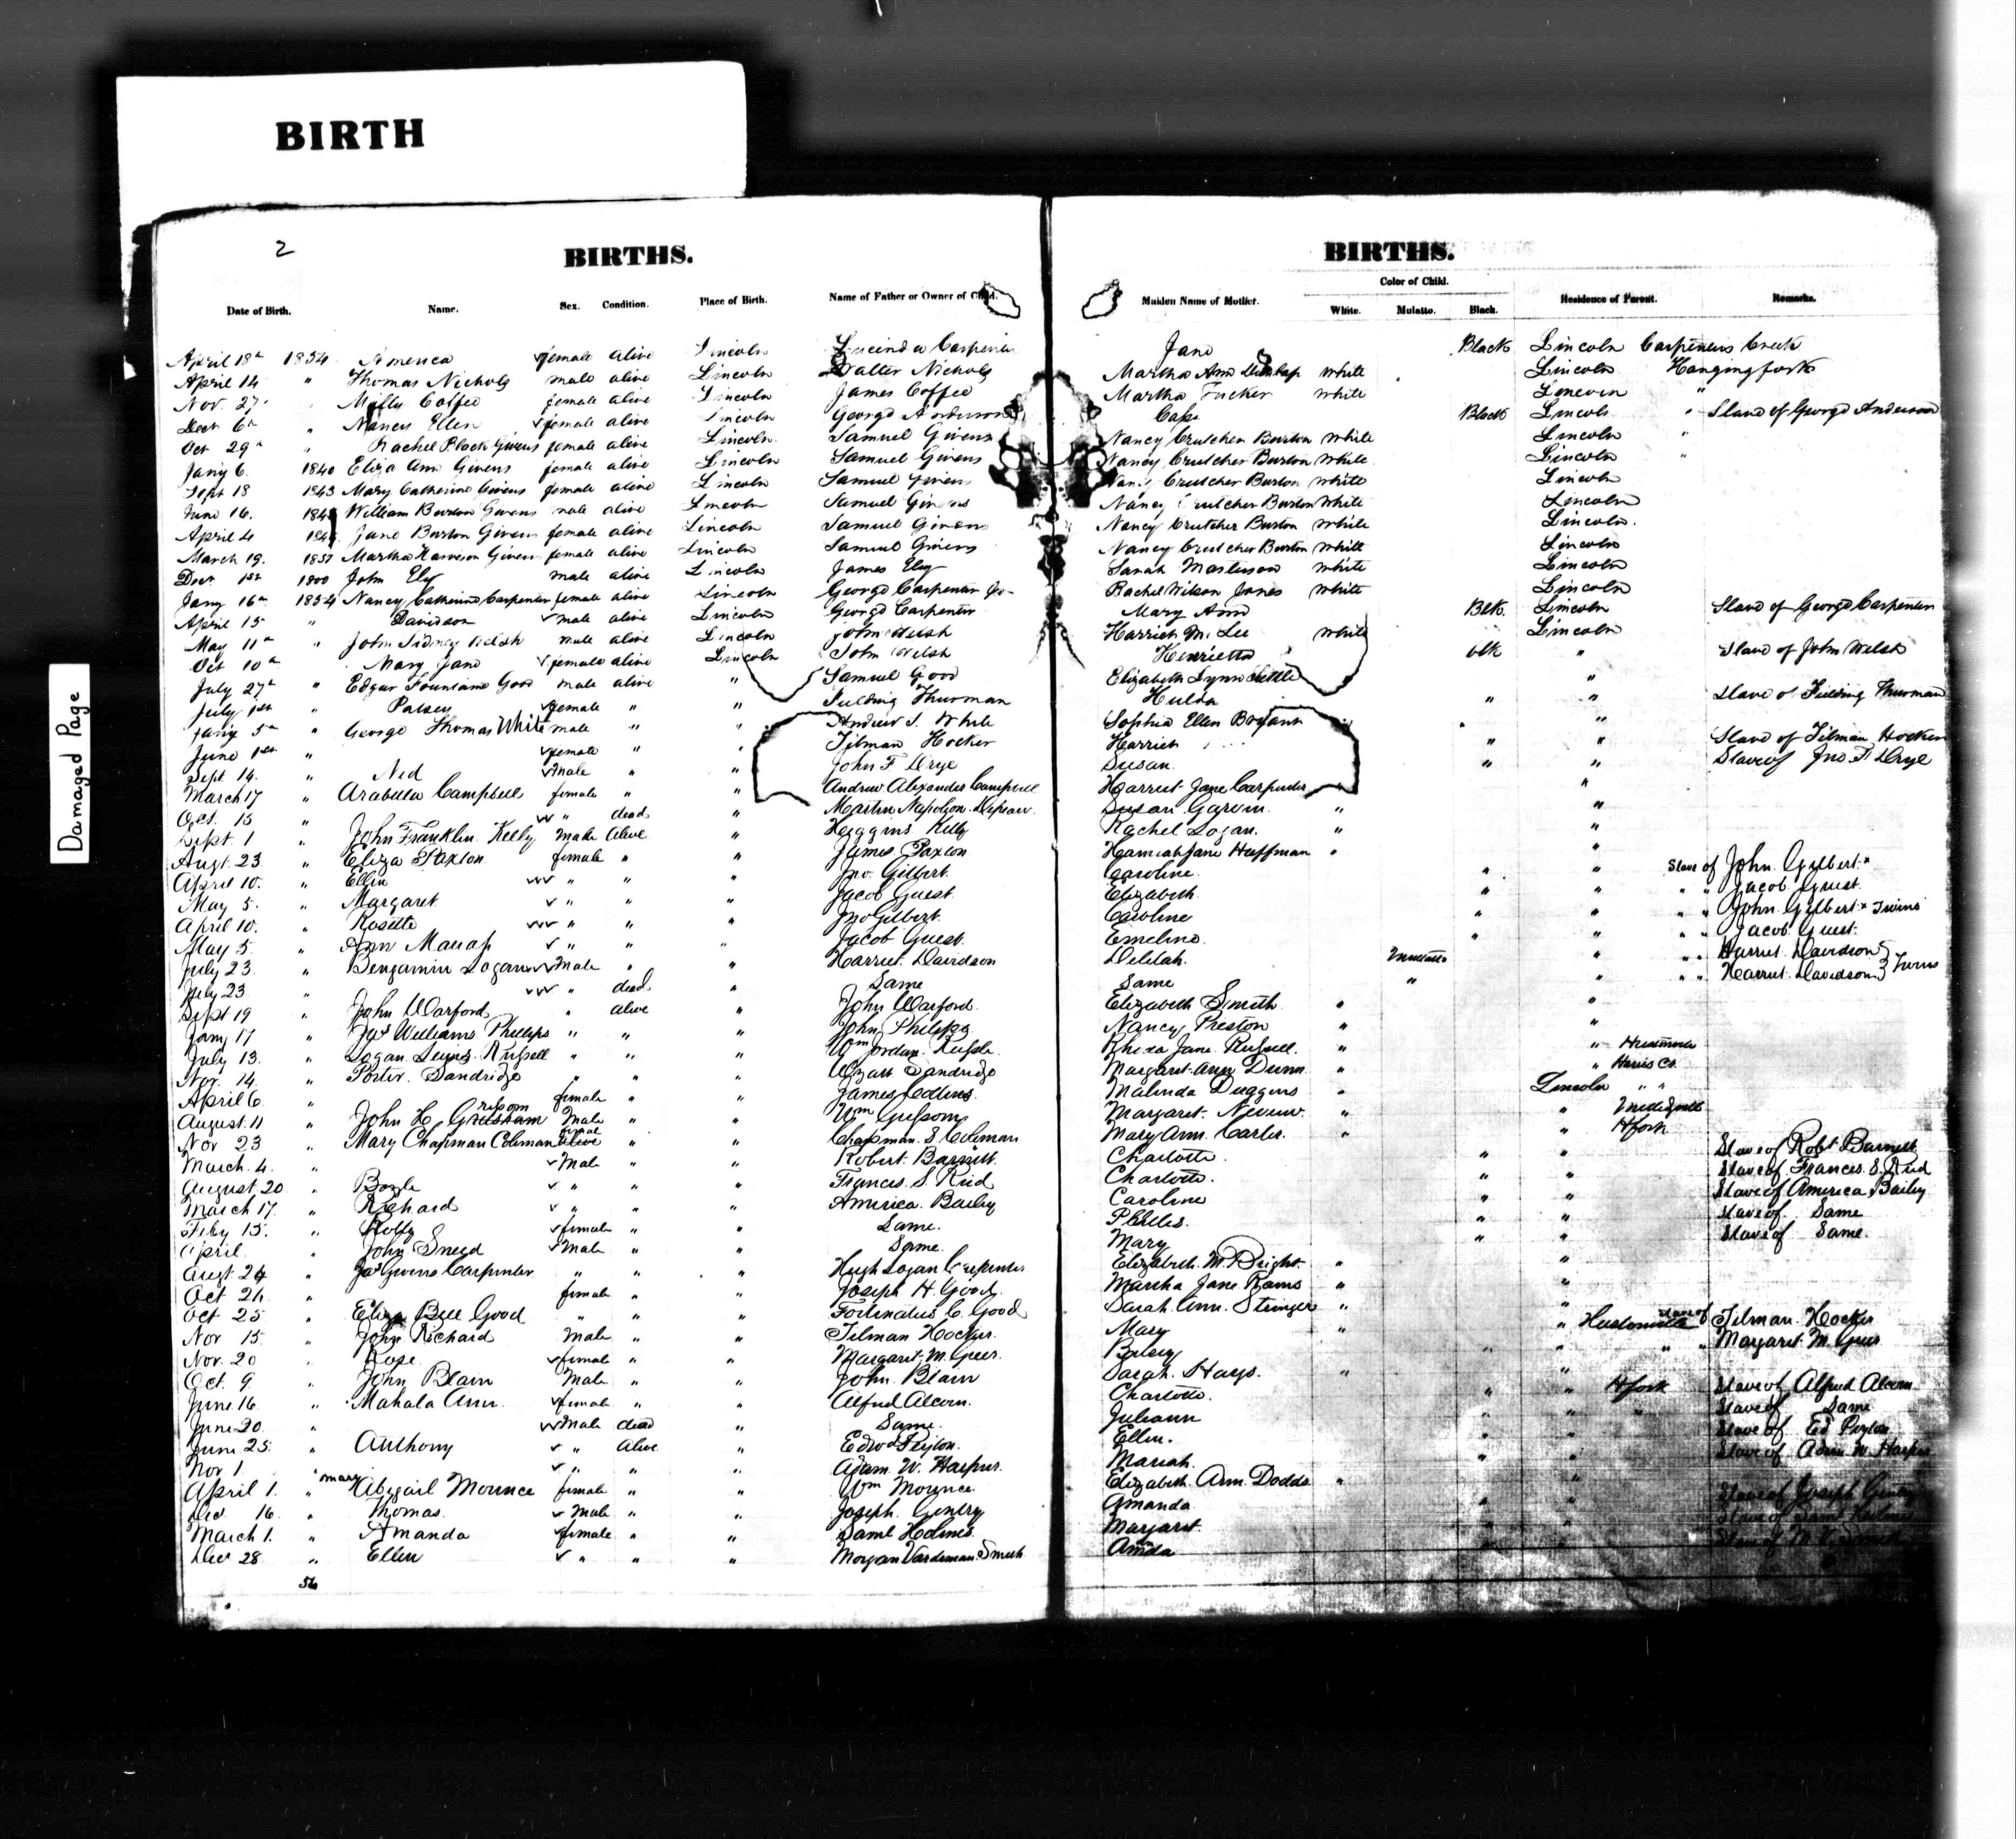 BIRTH
Damaged Page
2
BIRTHS. BIRTHS.
Color of Child.
Date of Birth. Name. Sex. Condition. Place of Birth. Name of Father or Owner of Child. Maiden Name of Mother. White. Mulatto. Black. Residence of Parent. Remarks.
April 18th 1854 America female alive Lincoln Lucinda Carpenter Jane Black Lincoln Carpenters Creek
April 14 " Thomas Nichols male alive Lincoln Walter Nichols Martha Ann Dunlap White Lincoln Hangingfork
Nov. 27 Milly Coffee female alive Lincoln James Coffee Martha Tucker White Lincoln "
Decr 6th " Nancy Ellen female alive Lincoln George Anderson Black Lincoln " Slave of George Anderson
Oct 29th " Rachel Black Givens female alive Lincoln Samuel Givens Nancy Crutcher Burton White Lincoln "
Jany 6. 1840 Eliza Ann Givens female alive Lincoln Samuel Givens Nancy Crutcher Burton White Lincoln "
Sept 18 1843 Mary Catherine Givens female alive Lincoln Samuel Givens Nancy Crutcher Burton White Lincoln
June 16. William Burton Givens male alive Lincoln Samuel Givens Nancy Crutcher Burton White Lincoln
April 4 Jane Burton Givens female alive Lincoln Samuel Givens Nancy Crutcher Burton White Lincoln.
March 19. Martha Harrison Givens female alive Lincoln Samuel Givens Nancy Crutcher Burton White Lincoln
Decr 1st John Ely male alive Lincoln James Ely Sarah White Lincoln
Jany 16th 1854 Nancy Catherine Carpenter female alive Lincoln George Carpenter Jr Rachel Wilson Jones White Lincoln
April 15 " Davidson male alive Lincoln George Carpenter Mary Ann Blk. Lincoln Slave of George Carpenter
May 11th " John Sidney Welsh male alive Lincoln John Welsh Harriet M. Lee White Lincoln
Oct 10th Mary Jane female alive Lincoln John Welsh Henrietta blk " Slave of John Welsh
July 27th " Edgar Fountaine Good male alive " Samuel Good Elizabeth Lynn Settle "
July 1st " Patsey female " " Fielding Thurman Hulda " " Slave of Fielding Thurman
Jany 5th " George Thomas White male " " Andrew S. White Sophia Ellen Bryant "
June 1st " female " " Tilman Hocker Harriet " " Slave of Tilman Hocker
Sept 14. " Ned Male " " John F Drye Susan. " " Slave of Jno. F. Drye
March 17 " Arabella Campbell female " " Andrew Alexander Campbell Harriet Jane Carpenter "
Oct. 13 " " dead " Martin Napoleon Susan Garvin. " "
Sept. 1 " John Franklin Kelly Male alive " Higgins Kelly Rachel Logan. " "
Augt. 23 " Eliza Paxton female " " James Paxton Hannah Jane Huffman " "
April 10. " Ellen " " " Jno. Gilbert. Caroline. " " Slave of John Gilbert. x
May 5. " Margaret " " " Jacob Guest. Elizabeth. " " " " Jacob Guest.
April 10. " Rosetta " " " Jno Gilbert. Caroline " " " " John Gilbert x Twins
May 5 " Ann Mariah " " " Jacob Guest. Emeline. " " " " Jacob Guest.
July 23 " Benjamin Logan Male " " Harriet Davidson Delilah. Mulatto " " " Harriet Davidson } Twins
July 23 " " dead " Same Same " " " " Harriet Davidson }
Sept 19 " John Warford " alive " John Warford. Elizabeth Smith " "
Jany 17 " Jas Williams Phillips " " " John Phillips Nancy Preston " "
July 13. " Logan Lewis Russell " " " Wm Jordan Russell Jane Russell. " "
Nov. 14. " Porter Sandridge " " " Wyatt Sandridge Margaret Ann Dunn. " "
April 6 " female " " James Collins. Malinda Duggins " Lincoln " "
August. 11 " John H. Gresham Grissom Male " " Wm Grissom Margaret "
Nov 23 " Mary Chapman Coleman female alive " " Chapman S Coleman Mary Ann Carter. " " Hfork
March. 4. " Male " " Robert Barnett. Charlotte. " " Slave of Robt Barnett
August. 20 " Boyle " " " Frances. S. Reid Charlotte. " " Slave of Frances. S. Reid
March 17. " Richard " " " America. Bailey Caroline " " Slave of America Bailey
Feby 15. " female " " Same. " " Slave of Same
April. " John Sneed Male " " Same. Mary " " Slave of Same.
Augt. 24 " Jas Givens Carpenter " " " Hugh Logan Carpenter Elizabeth M. Bright " "
Oct 24. " female " " Joseph H. Good. Martha Jane " "
Oct 25 " Eliza Bell Good " " " Fortunatus C. Good Sarah Ann. Stringer " "
Nov 15. " John Richard Male " " Tilman Hocker. Mary " " Hustonville Slave of Tilman Hocker
Nov. 20 " Rose. female " " Margaret. M. Geer. " " " " Margaret M. Geer
Oct. 9 " John Blain Male " " John Blain Sarah. Hays. " "
June 16. " Mahala Ann. female " " Alfred Alcorn. Charlotte. " " Hfork Slave of Alfred Alcorn.
June 20. " Male dead " Same. Juliann " " " Slave of Same
June 25. " Anthony " alive " Edwd Peyton. Ellen. " " Slave of Ed Peyton
Nov 1. " " " " Adam. W. Harper. Mariah. " " Slave of Adam W. Harper
April 1. " Mary Abigail Mounce female " " Wm Mounce. Elizabeth. Ann. Dodds " "
Dec. 16. " Thomas. Male " " Joseph. Gentry Amanda " " Slave of Joseph Gentry
March 1. " Amanda female " " Saml Holmes. Margaret. " " Slave of Saml Holmes
Decr 28 " Ellen " " " Morgan Vardeman Smith " Slave of
56